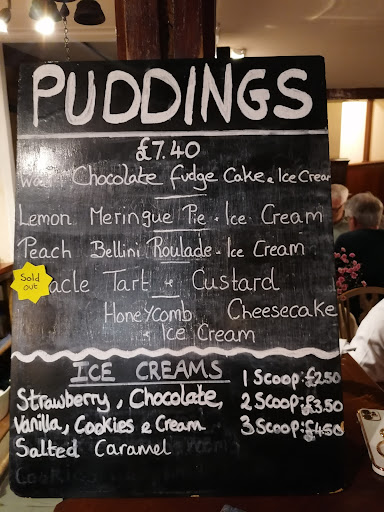 PUDDINGS
£7.40
Chocolate Fudge Cake & Ice Cream
Lemon Meringue Pie & Ice Cream
Peach Bellini Roulade & Ice Cream
Sold out
acle Tart & Custard
Honeycomb Cheesecake
& Ice Cream
ICE CREAMS
Strawberry, Chocolate, 1 Scoop: £2.50
Vanilla, Cookies & Cream 2 Scoop: £3.50
Salted Caramel 3 Scoop: £4.50